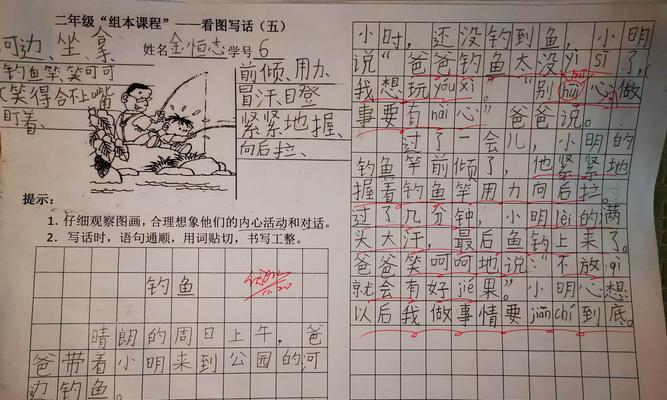 二年级“组本课程”——看图写话（五）
河边 坐 拿
姓名 金恒志 学号 6
钓鱼竿 笑呵呵
(笑得合不上嘴
盯着
前倾、用力、
冒汗 目登
紧紧地握、
向后拉、
提示：
1．仔细观察图画，合理想象他们的内心活动和对话。
2．写话时，语句通顺，用词贴切，书写工整。
钓鱼
11.20
晴朗的周日上午，爸
爸带着小明来到公园的河
边钓鱼。
小时，还没钓到鱼，小明
说“爸爸钓鱼太没yì sī了，
我想玩yóu xì。”“别huī心，做
事要有nài心”爸爸说。
过了一会儿，小明的
钓鱼竿前倾了，他紧紧地
握着钓鱼竿用力向后拉。
过了几分钟，小明lèi的满
头大汗，最后鱼钓上来了。
爸爸笑呵呵地说：“不放qì
就会有好jié果。”小明心想
以后我做事情要jiān chí到底。